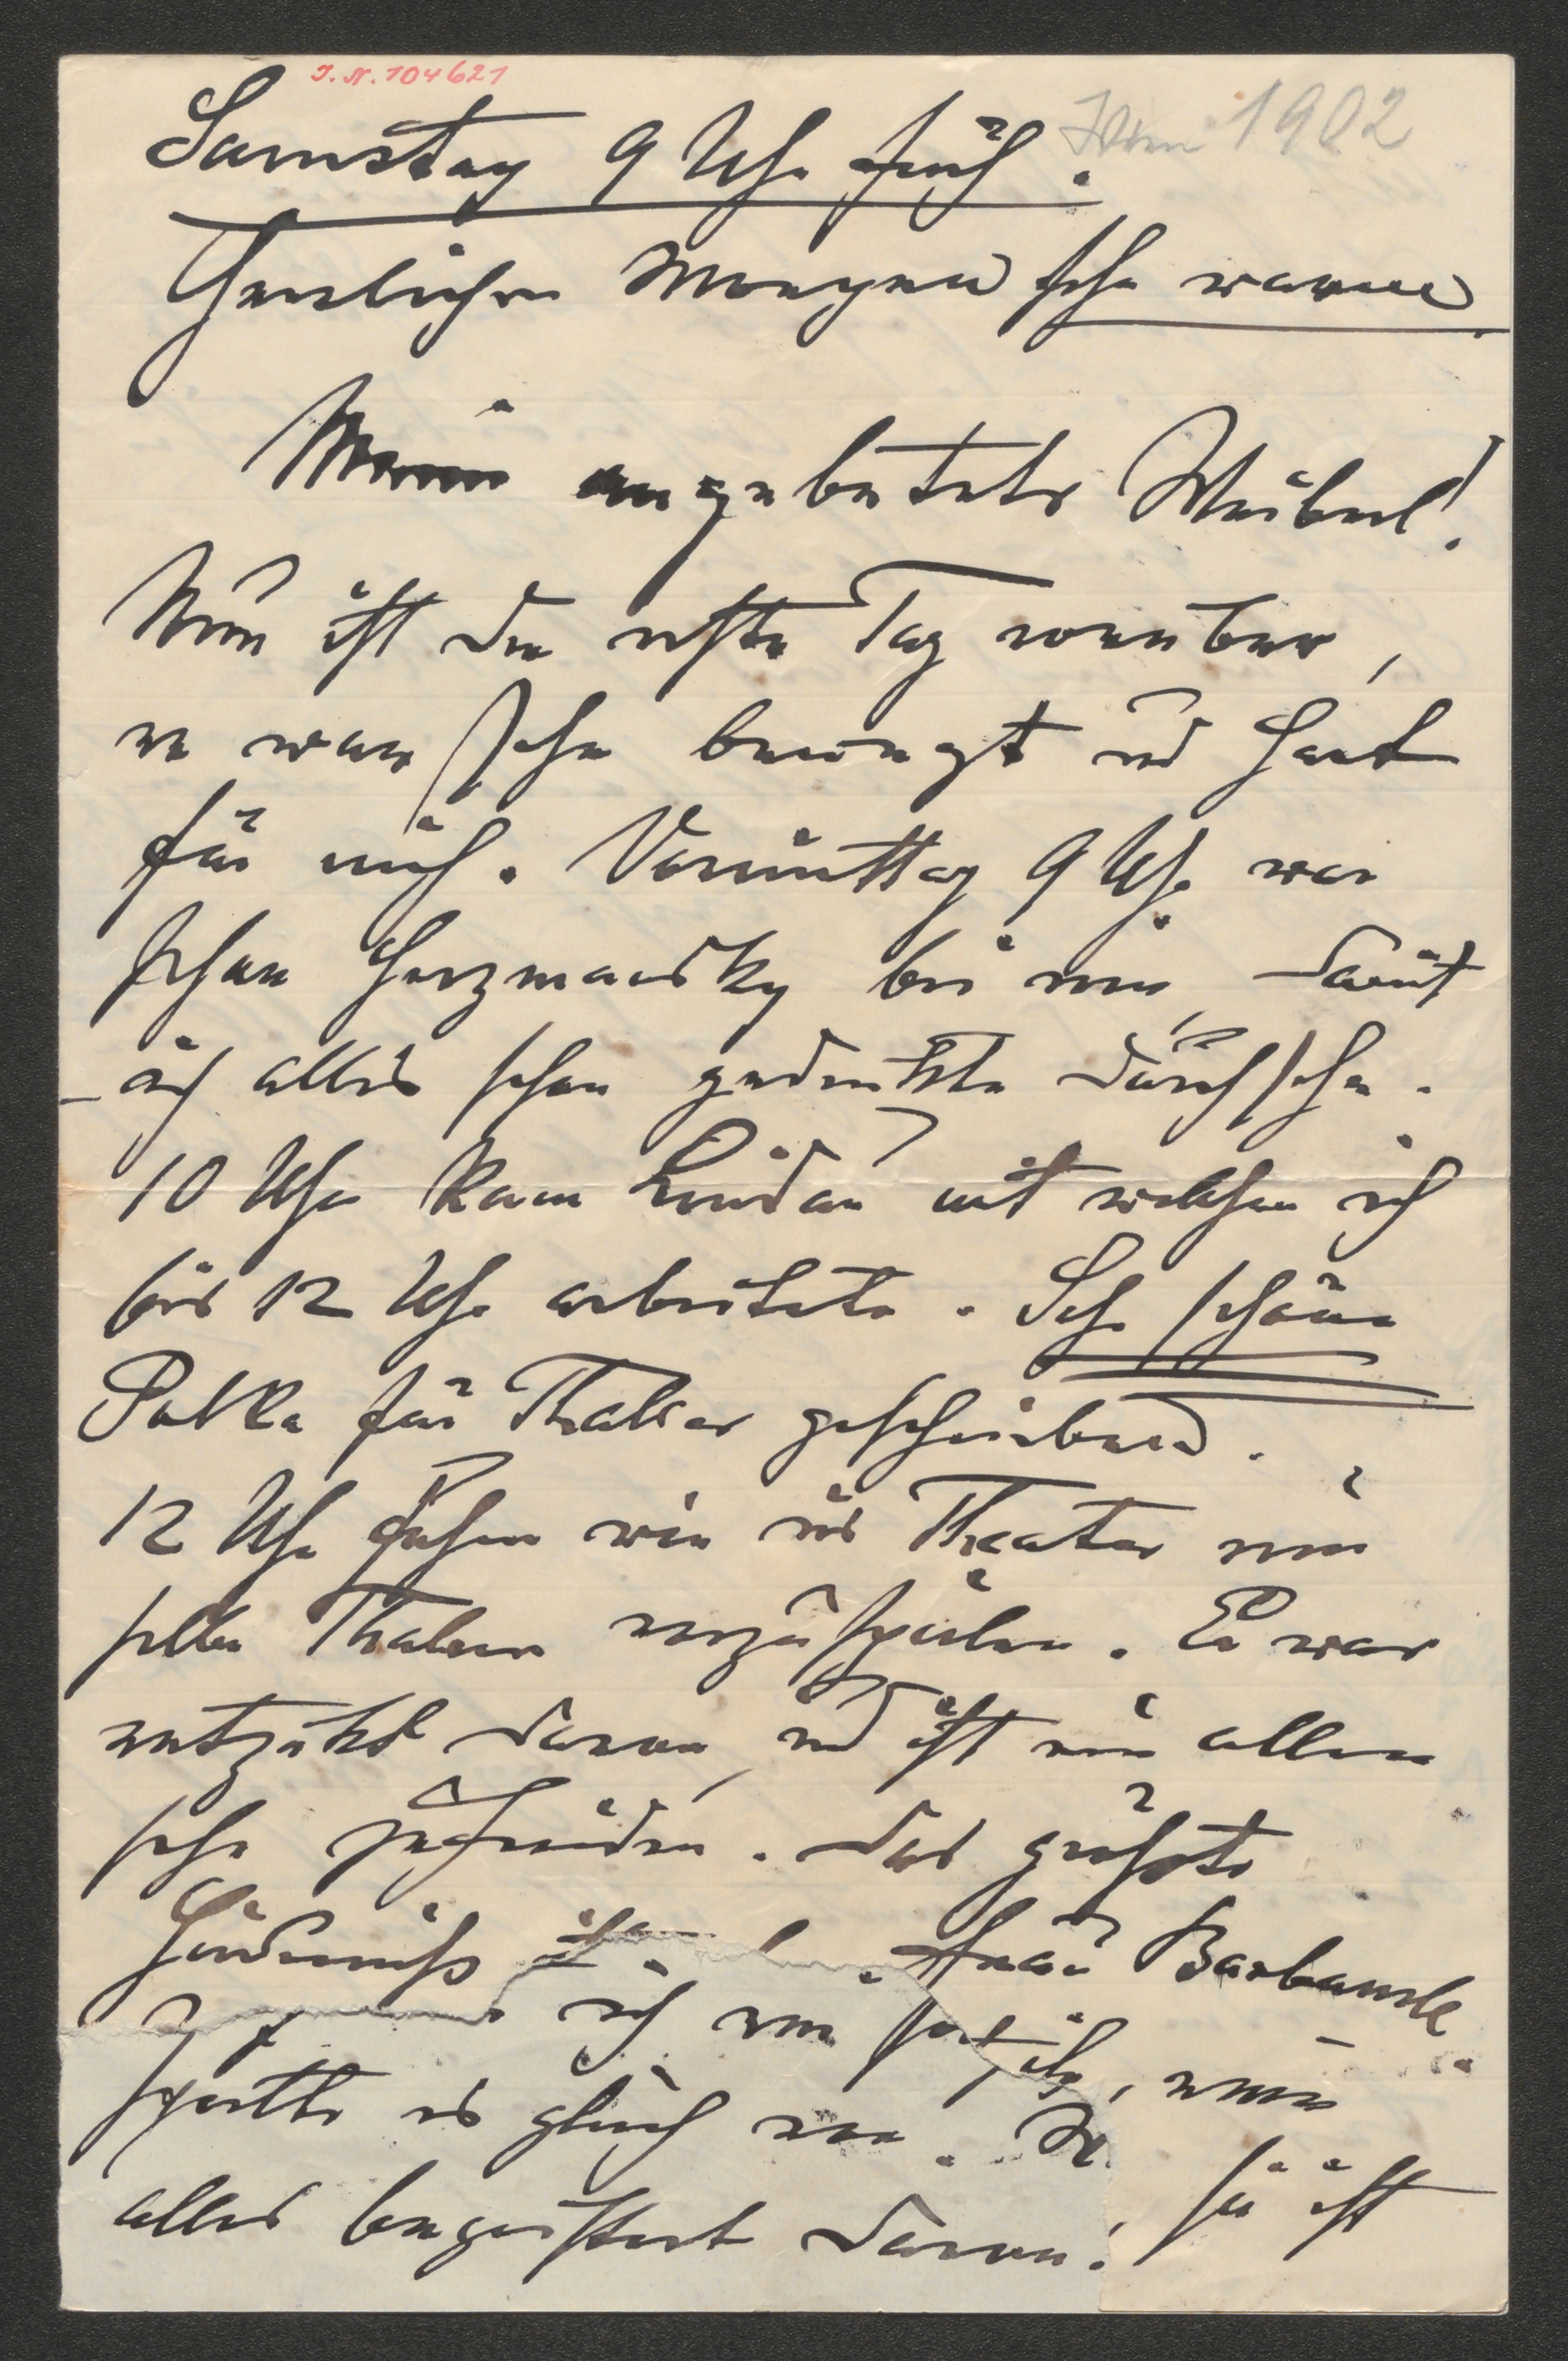 J. N. 104621
1902
Samstag 9 Uhr früh.
Herrlicher Morgen sehr warm
Mein angebetets Weiberl!
Nun ist der erste Tag vorüber,
er war sehr bewegt und hart
für mich. Vormittag 9 Uhr war
schon Herzmansky bei mir, damit
ich alles schon gedruckte durchsehe.
10 Uhr kam Lindau mit welchem ich
bis 12 Uhr arbeitete. Sehr schöne
Polka für Thaller geschrieben.
12 Uhr fuhren wir ins Theater um
selbe Thaller vorzuspielen. Er war
entzückt davon, und ist mit allem
sehr zufrieden. Das größte
Hinderniss ist Frau Barbands
ich von
spielte es gleich vor. sie ist
alles begeistert davon!